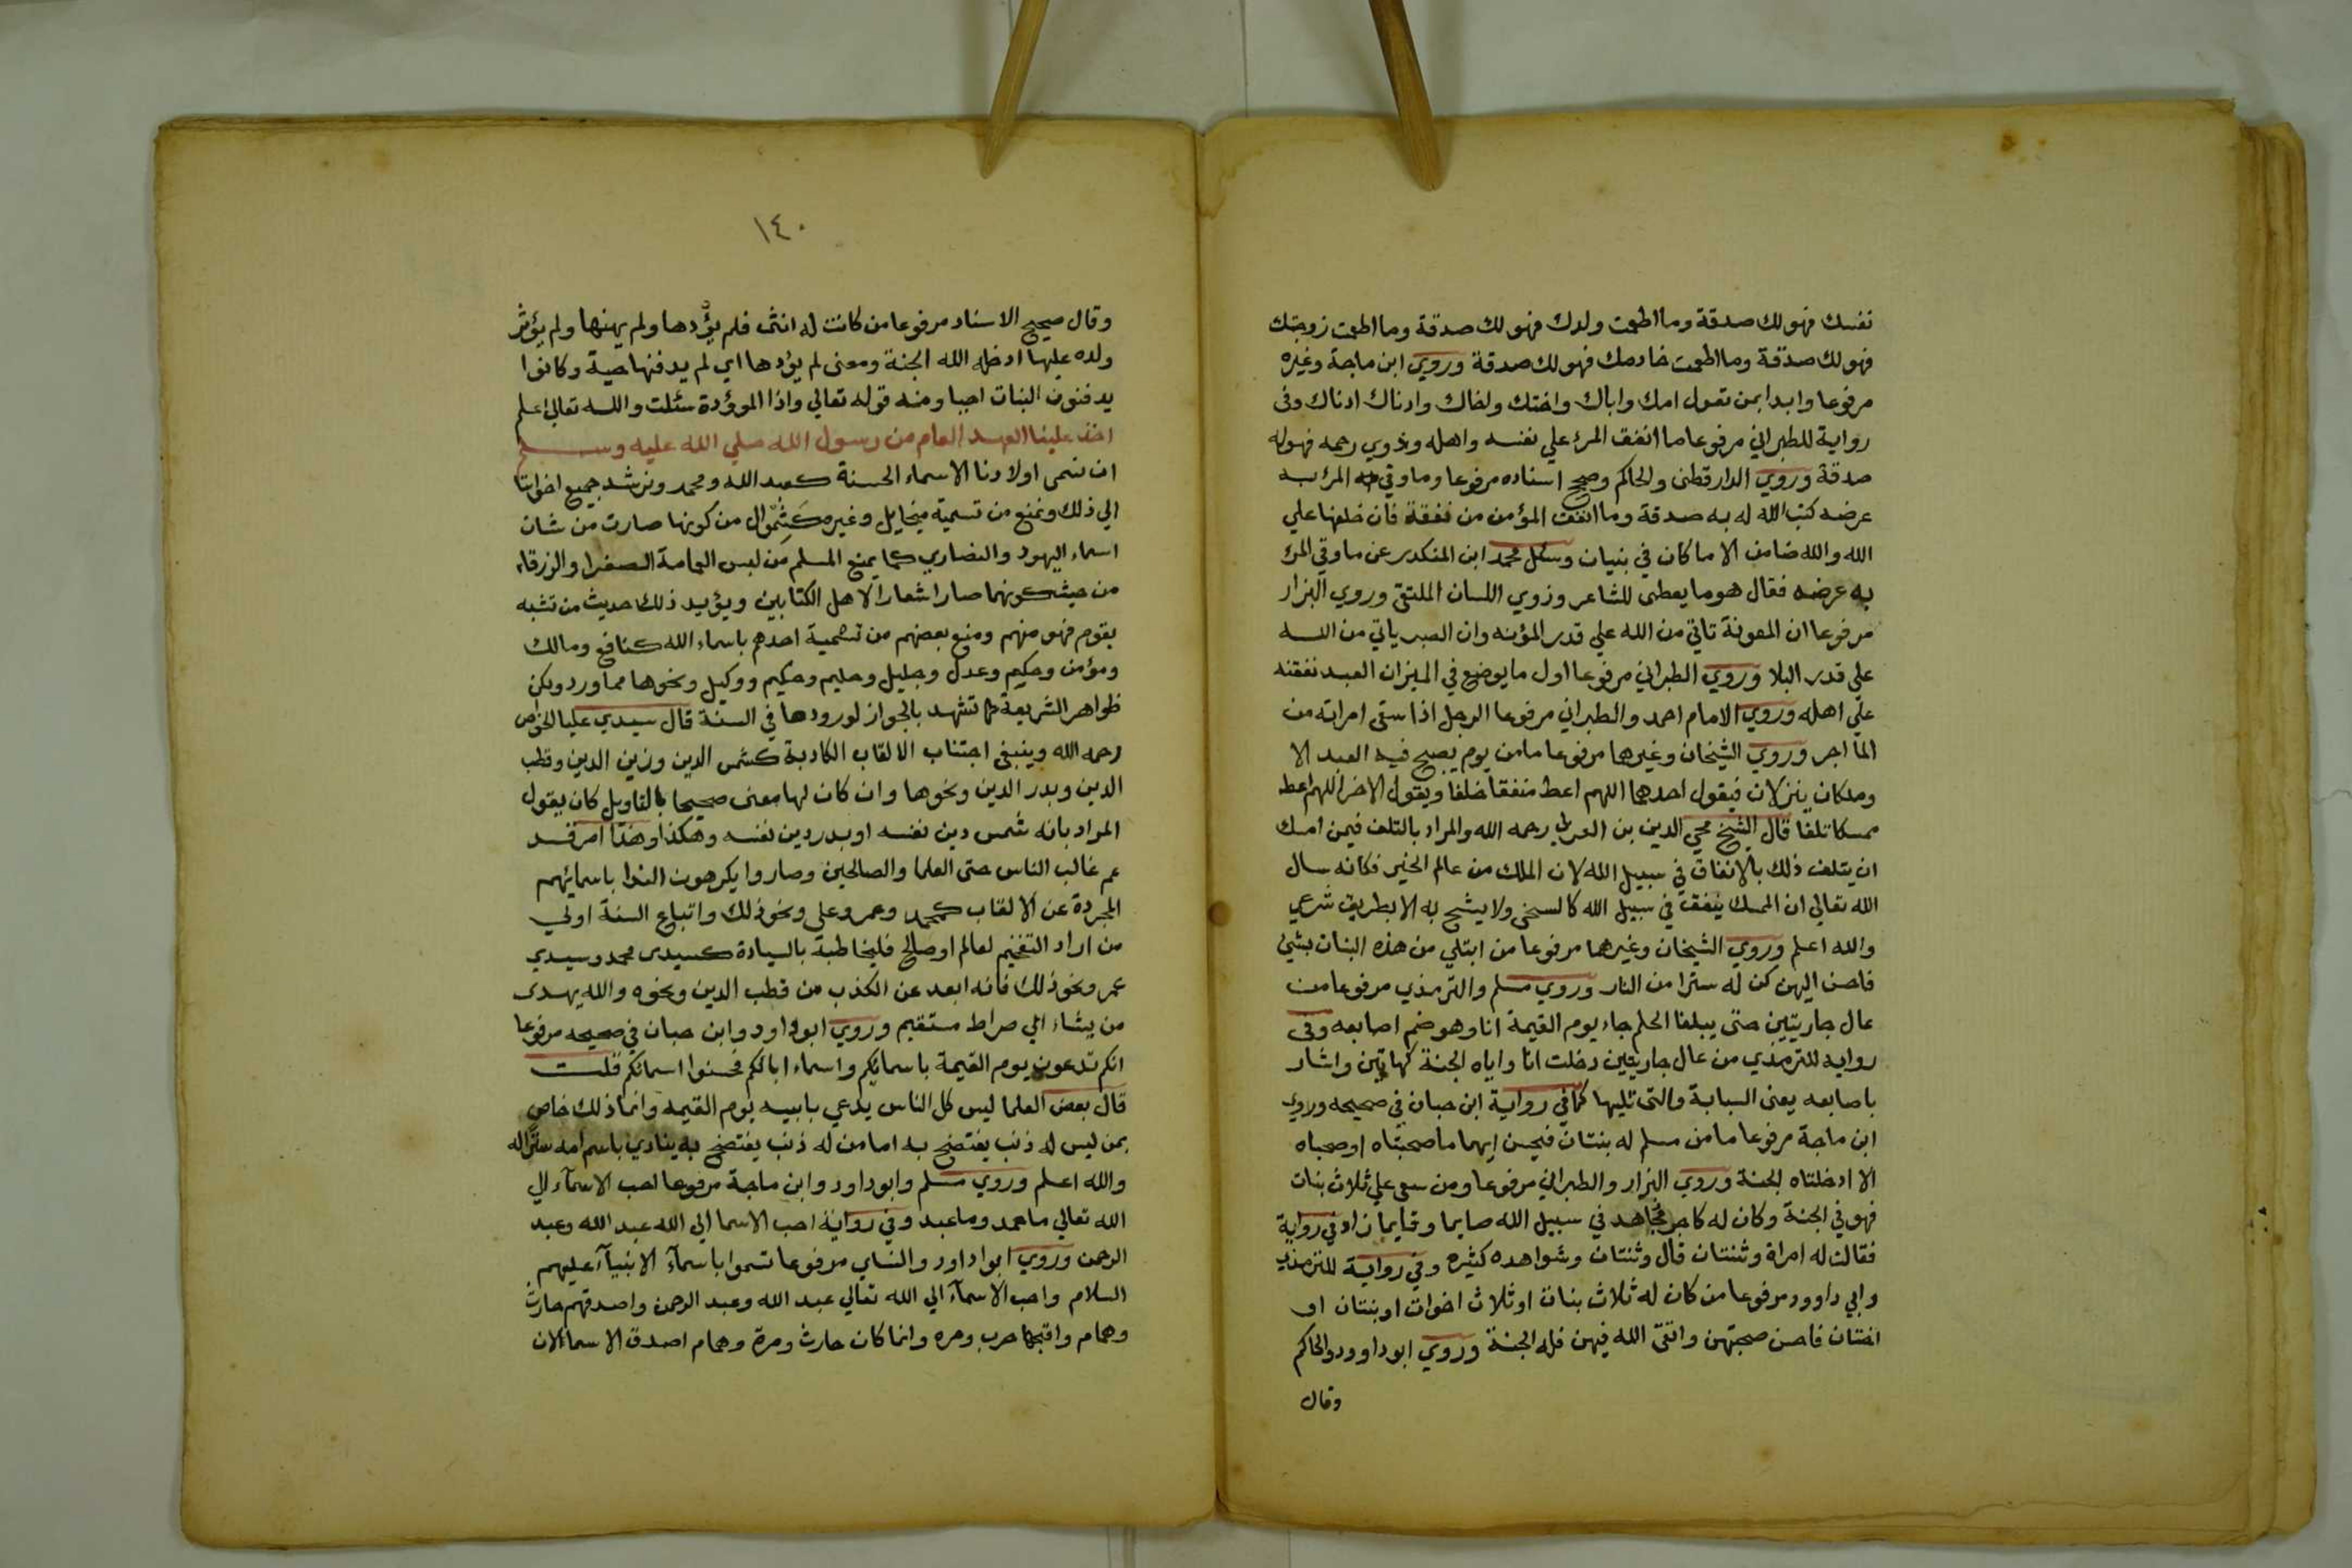 نفسك فهو لك صدقة وما اطعمت ولدك فهو لك صدقة وما اطعمت زوجتك
فهو لك صدقة وما اطعمت خادمك فهو لك صدقة وروي ابن ماجة وغيره
مرفوعا وابدا بمن تعول امك واباك واختك واخاك وادناك ادناك وفى
رواية للطبراني مرفوعا ما انفق المرء علي نفسه واهله وذوي رحمه فهو له
صدقة وروي الدارقطنى والحاكم وصحح اسناده مرفوعا وما وقي به المرء به
عرضه كتب الله له به صدقة وما انفق المؤمن من نفقة فان خلفها علي
الله والله ضامن الا ما كان في بنيان وسئل محمد ابن المنكدر عن ما وقي المرء
به عرضه فقال هو ما يعطى للشاعر وذوي اللسان الملتقى وروي البزار
مرفوعا ان المعونة تاتي من الله علي قدر المؤنه وان الصبر ياتي من الله
علي قدر البلا وروي الطبراني مرفوعا اول ما يوضع في الميزان العبد نفقته
علي اهله وروي الامام احمد والطبراني مرفوعا الرجل اذا سقى امراته من
الما اجر وروي الشيخان وغيرها مرفوعا ما من يوم يصبح فيه العبد الا
وملكان ينزلان فيقول احدهما اللهم اعط منفقا خلفا ويقول الاخر اللهم اعط
ممسكا تلفا قال الشيخ محي الدين بن العربي رحمه الله والمراد بالتلف فيمن امسك
ان يتلف ذلك بالانفاق في سبيل الله لان الملك من عالم الخير فكانه سال
الله تعالي ان الممسك ينفق في سبيل الله كالسخى ولا يشح به الا بطريق شرعي
والله اعلم وروي الشيخان وغيرهما مرفوعا من ابتلي من هذه البنات بشئ
فاحسن اليهن كن له سترا من النار وروي مسلم والترمذي مرفوعا من
عال جاريتين حتى يبلغا الحلم جاء يوم القيمة انا وهو ضم اصابعه وفى
رواية للترمذي من عال جاريتين دخلت انا واياه الجنة كهاتين واشار
باصابعه يعنى السبابة والتى تليها كما في رواية ابن حبان في صحيحه وروي
ابن ماجة مرفوعا ما من مسلم له بنتان فيحسن اليهما ما صحبتاه او صحباه
الا ادخلتاه الجنة وروي البزار والطبراني مرفوعا ومن سعى علي ثلاث بنات
فهو في الجنة وكان له كاجر مجاهد في سبيل الله صايما وقايما زاد في رواية
فقالت له امراة وثنتان قال وثنتان وشواهده كثيره وفي رواية للترمذي
وابي داوود مرفوعا من كان له ثلاث بنات او ثلاث اخوات او بنتان او
اختان فاحسن صحبتهن واتقى الله فيهن فله الجنة وروي ابو داوود والحاكم
وقال
١٤٠
وقال صحيح الاسناد مرفوعا من كانت له انثى فلم يؤدها ولم يهنها ولم يؤثر
ولده عليها ادخله الله الجنة ومعنى لم يؤدها اي لم يدفنها حية وكانوا
يدفنون البنات احيا ومنه قوله تعالي واذا الموؤدة سئلت والله تعالي اعلم
اخذ علينا العهد العام من رسول الله صلي الله عليه وسلم
ان نسمى اولادنا الاسماء الحسنة كعبد الله ومحمد ونرشد جميع اخواننا
الي ذلك ونمنع من تسمية ميخايل وغيره كشموال من كونها صارت من شان
اسماء اليهود والنصاري كما يمنع المسلم من لبس العمامة الصفرا والزرقاء
من حيث كونهما صارا شعارا لاهل الكتابين ويؤيد ذلك حديث من تشبه
بقوم فهو منهم ومنع بعضهم من تسمية احدهم باسماء الله كنافع ومالك
ومؤمن وحكيم وعدل وجليل وحليم وحكيم ووكيل ونحوها مما ورد ولكن
ظواهر الشريعة تشهد بالجواز لورودها في السنة قال سيدي عليا الخواص
رحمه الله وينبغى اجتناب الالقاب الكاذبة كشمس الدين وزين الدين وقطب
الدين وبدر الدين ونحوها وان كان لها معنى صحيحا بالتاويل كان يقول
المراد بانه شمس دين نفسه او بدر دين نفسه وهكذا وهذا امر قد
عم غالب الناس حتى العلما والصالحين وصاروا يكرهون الندا باسمائهم
المجردة عن الالقاب كمحمد وعمر وعلي ونحو ذلك واتباع السنة اولي
من اراد التفخيم لعالم او صالح فليخاطبة بالسيادة كسيدى محمد وسيدي
عمر ونحو ذلك فانه ابعد عن الكذب من قطب الدين ونحوه والله يهدى
من يشاء الي صراط مستقيم وروي ابو داود وابن حبان في صحيحه مرفوعا
انكم تدعون يوم القيمة باسمائكم واسماء ابائكم فحسنوا اسمائكم قلت
قال بعض العلما ليس كل الناس يدعي بابيه يوم القيمه وانما ذلك خاص
بمن ليس له ذنب يفتضح به اما من له ذنب يفتضح به ينادي باسم امه سترا له
والله اعلم وروي مسلم وابو داود وابن ماجة مرفوعا احب الاسماء الي
الله تعالي ما حمد وما عبد وفي رواية احب الاسما الي الله عبد الله وعبد
الرحمن وروي ابوا داود والنساي مرفوعا تسموا باسماء الانبياء عليهم
السلام واحب الاسماء الي الله تعالي عبد الله وعبد الرحمن واصدقهم حارث
وهمام واقبحها حرب ومره وانما كان حارث ومرة وهمام اصدق الاسما لان